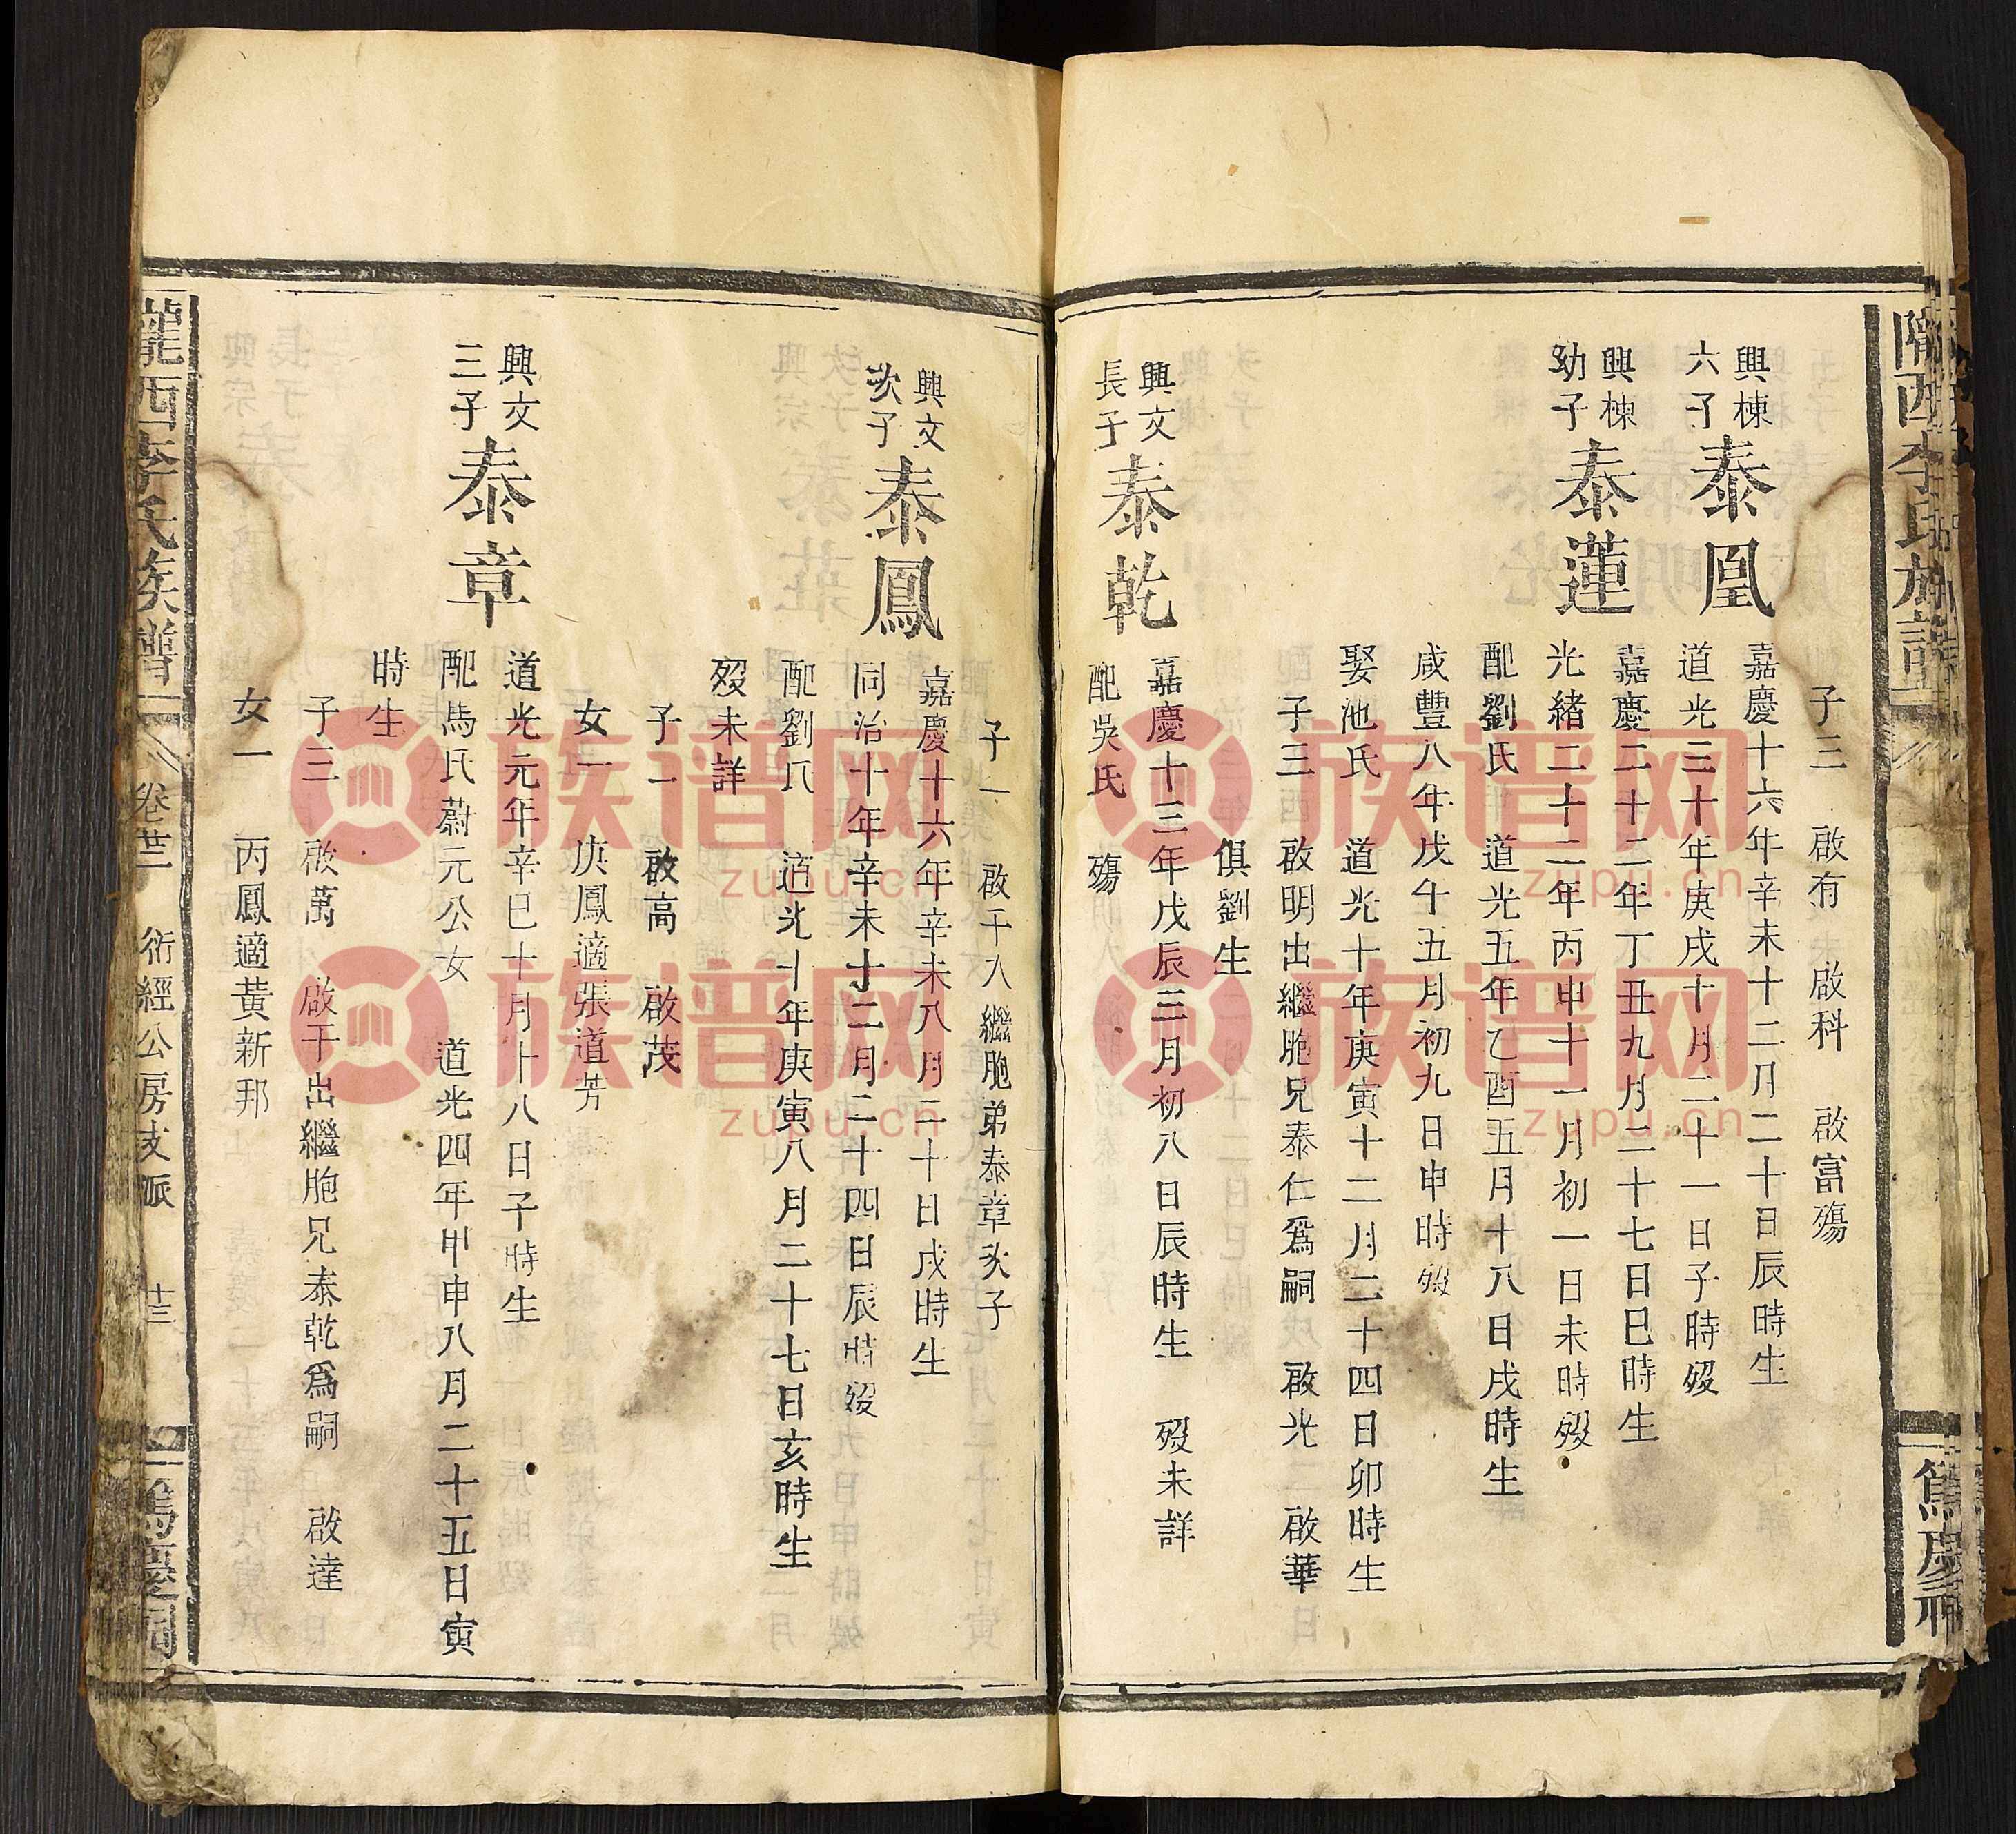 隴西李氏族譜
篤慶祠
子三 啟有 啟科 啟富殤
興棟
六子
泰凰
嘉慶十六年辛未十二月二十日辰時生
道光三十年庚戌十月二十一日子時歿
興棟
幼子
泰蓮
嘉慶二十二年丁丑九月二十七日巳時生
光緒二十二年丙申十一月初一日未時歿
配劉氏 道光五年乙酉五月十八日戌時生
咸豐八年戊午五月初九日申時歿
娶池氏 道光十年庚寅十二月二十四日卯時生
子三 啟明出繼胞兄泰仁爲嗣 啟光 啟華
俱劉生
興文
長子
泰乾
嘉慶十三年戊辰三月初八日辰時生 歿未詳
配吳氏 殤
子一 啟干入繼胞弟泰章次子
興文
次子
泰鳳
嘉慶十六年辛未八月二十日戌時生
同治十年辛未十二月二十四日辰時歿
配劉氏 道光十年庚寅八月二十七日亥時生
歿未詳
子一 啟高 啟茂
女一 庚鳳適張道芳
興文
三子
泰章
道光元年辛巳十月十八日子時生
配馬氏蔚元公女 道光四年甲申八月二十五日寅
時生
子三 啟萬 啟干出繼胞兄泰乾爲嗣 啟達
女一 丙鳳適黃新邦
隴西李氏族譜
卷廿二 衍經公房支派 十三
篤慶祠
族谱网
zupu.cn
族谱网
zupu.cn
族谱网
zupu.cn
族谱网
zupu.cn